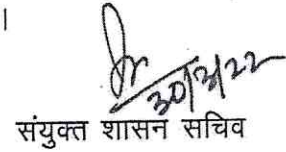 30/3/22
संयुक्त शासन सचिव